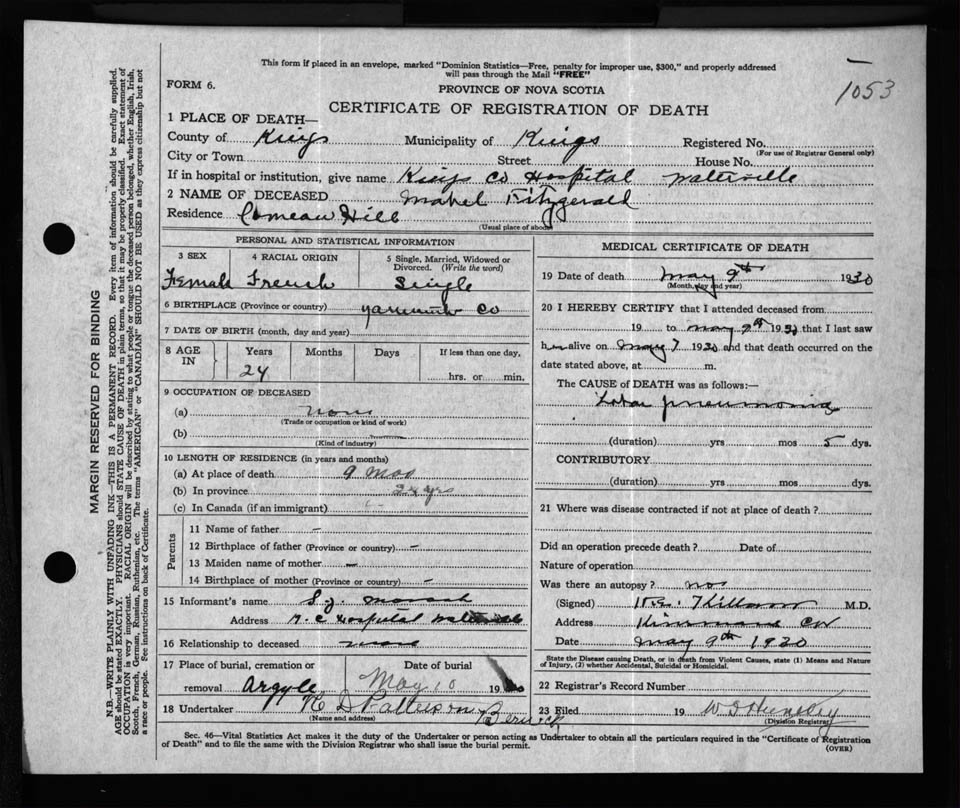 1053
This form if placed in an envelope, marked "Dominion Statistics—Free, penalty for improper use, $300," and properly addressed
will pass through the Mail "FREE"
FORM 6.
PROVINCE OF NOVA SCOTIA
CERTIFICATE OF REGISTRATION OF DEATH
1 PLACE OF DEATH—
County of Kings Municipality of Kings Registered No.
(For use of Registrar General only)
City or Town Street House No.
If in hospital or institution, give name Kings Co Hospital Waterville
2 NAME OF DECEASED Mabel Fitzgerald
Residence Comeau Hill
(Usual place of abode)
PERSONAL AND STATISTICAL INFORMATION
3 SEX 4 RACIAL ORIGIN 5 Single, Married, Widowed or
Divorced. (Write the word)
Female French Single
6 BIRTHPLACE (Province or country) Yarmouth Co
7 DATE OF BIRTH (month, day and year)
8 AGE IN Years Months Days If less than one day,
24 hrs. or min.
9 OCCUPATION OF DECEASED
(a) None
(Trade or occupation or kind of work)
(b) —
(Kind of industry)
10 LENGTH OF RESIDENCE (in years and months)
(a) At place of death 9 Mos
(b) In province 24 yrs
(c) In Canada (if an immigrant)
Parents
11 Name of father –
12 Birthplace of father (Province or country) –
13 Maiden name of mother –
14 Birthplace of mother (Province or country) –
15 Informant's name
Address Hospital
16 Relationship to deceased none
17 Place of burial, cremation or Date of burial
removal Argyle May 10 19
18 Undertaker Berwick
(Name and address)
MEDICAL CERTIFICATE OF DEATH
19 Date of death May 9th 1930
(Month, day and year)
20 I HEREBY CERTIFY that I attended deceased from
19 to May 9th 1930 that I last saw
her alive on May 7 1930 and that death occurred on the
date stated above, at m.
The CAUSE OF DEATH was as follows:—
Lobar pneumonia
(duration) yrs mos 5 dys.
CONTRIBUTORY
(duration) yrs mos dys.
21 Where was disease contracted if not at place of death?
Did an operation precede death? Date of
Nature of operation
Was there an autopsy? no
(Signed) M.D.
Address
Date May 9th 1930
State the Disease causing Death, or in death from Violent Causes, state (1) Means and Nature
of Injury, (2) whether Accidental, Suicidal or Homicidal.
22 Registrar's Record Number
23 Filed 19
(Division Registrar)
Sec. 46—Vital Statistics Act makes it the duty of the Undertaker or person acting as Undertaker to obtain all the particulars required in the "Certificate of Registration
of Death" and to file the same with the Division Registrar who shall issue the burial permit.
(OVER)
MARGIN RESERVED FOR BINDING
N.B.—WRITE PLAINLY WITH UNFADING INK—THIS IS A PERMANENT RECORD. Every item of information should be carefully supplied.
AGE should be stated EXACTLY. PHYSICIANS should STATE CAUSE OF DEATH in plain terms, so that it may be properly classified. Exact statement of
OCCUPATION is very important. RACIAL ORIGIN will be described by stating to what people or tongue the deceased person belonged, whether English, Irish,
Scotch, French, German, Russian, Ruthenian, etc. The terms "AMERICAN" or "CANADIAN" SHOULD NOT BE USED as they express citizenship but not
a race or people. See instructions on back of Certificate.